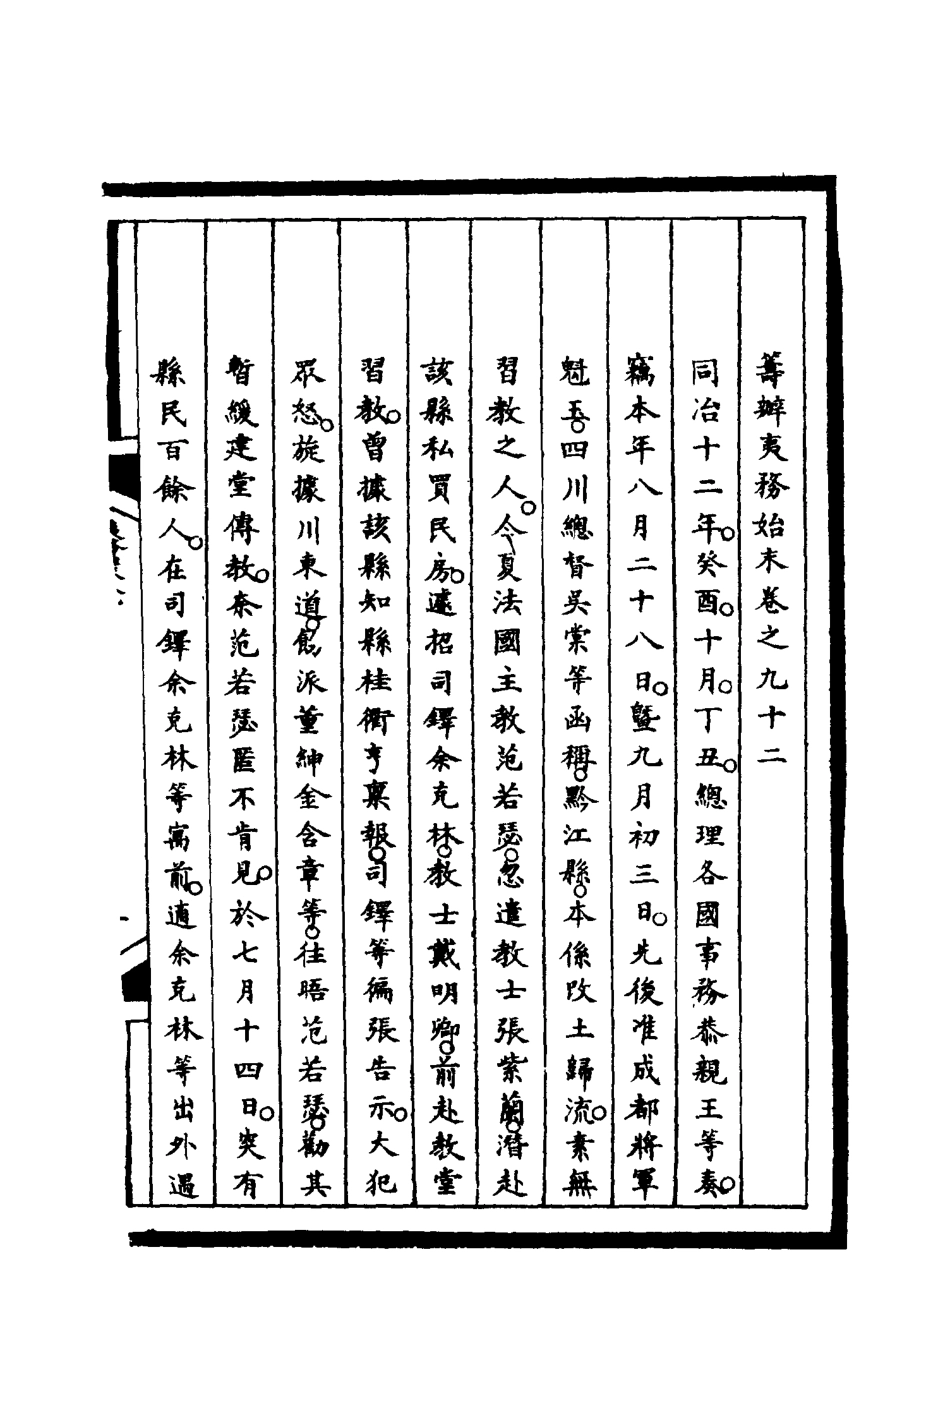 籌辦夷務始末卷之九十二
同治十二年。癸酉。十月。丁丑。總理各國事務恭親王等奏。
竊本年八月二十八日。曁九月初三日。先後准成都將軍
魁玉。四川總督吳棠等函稱。黔江縣。本係改土歸流。素無
習教之人。今夏法國主教范若瑟。忽遣教士張紫蘭。潛赴
該縣私買民房。遽招司鐸余克林。教士戴明卿。前赴教堂
習教。曾據該縣知縣桂衢亨稟報。司鐸等徧張告示。大犯
眾怒。旋據川東道。飭派董紳金含章等。往晤范若瑟。勸其
暫緩建堂傳教。奈范若瑟匿不肯見。於七月十四日。突有
縣民百餘人。在司鐸余克林等寓前。適余克林等出外遇